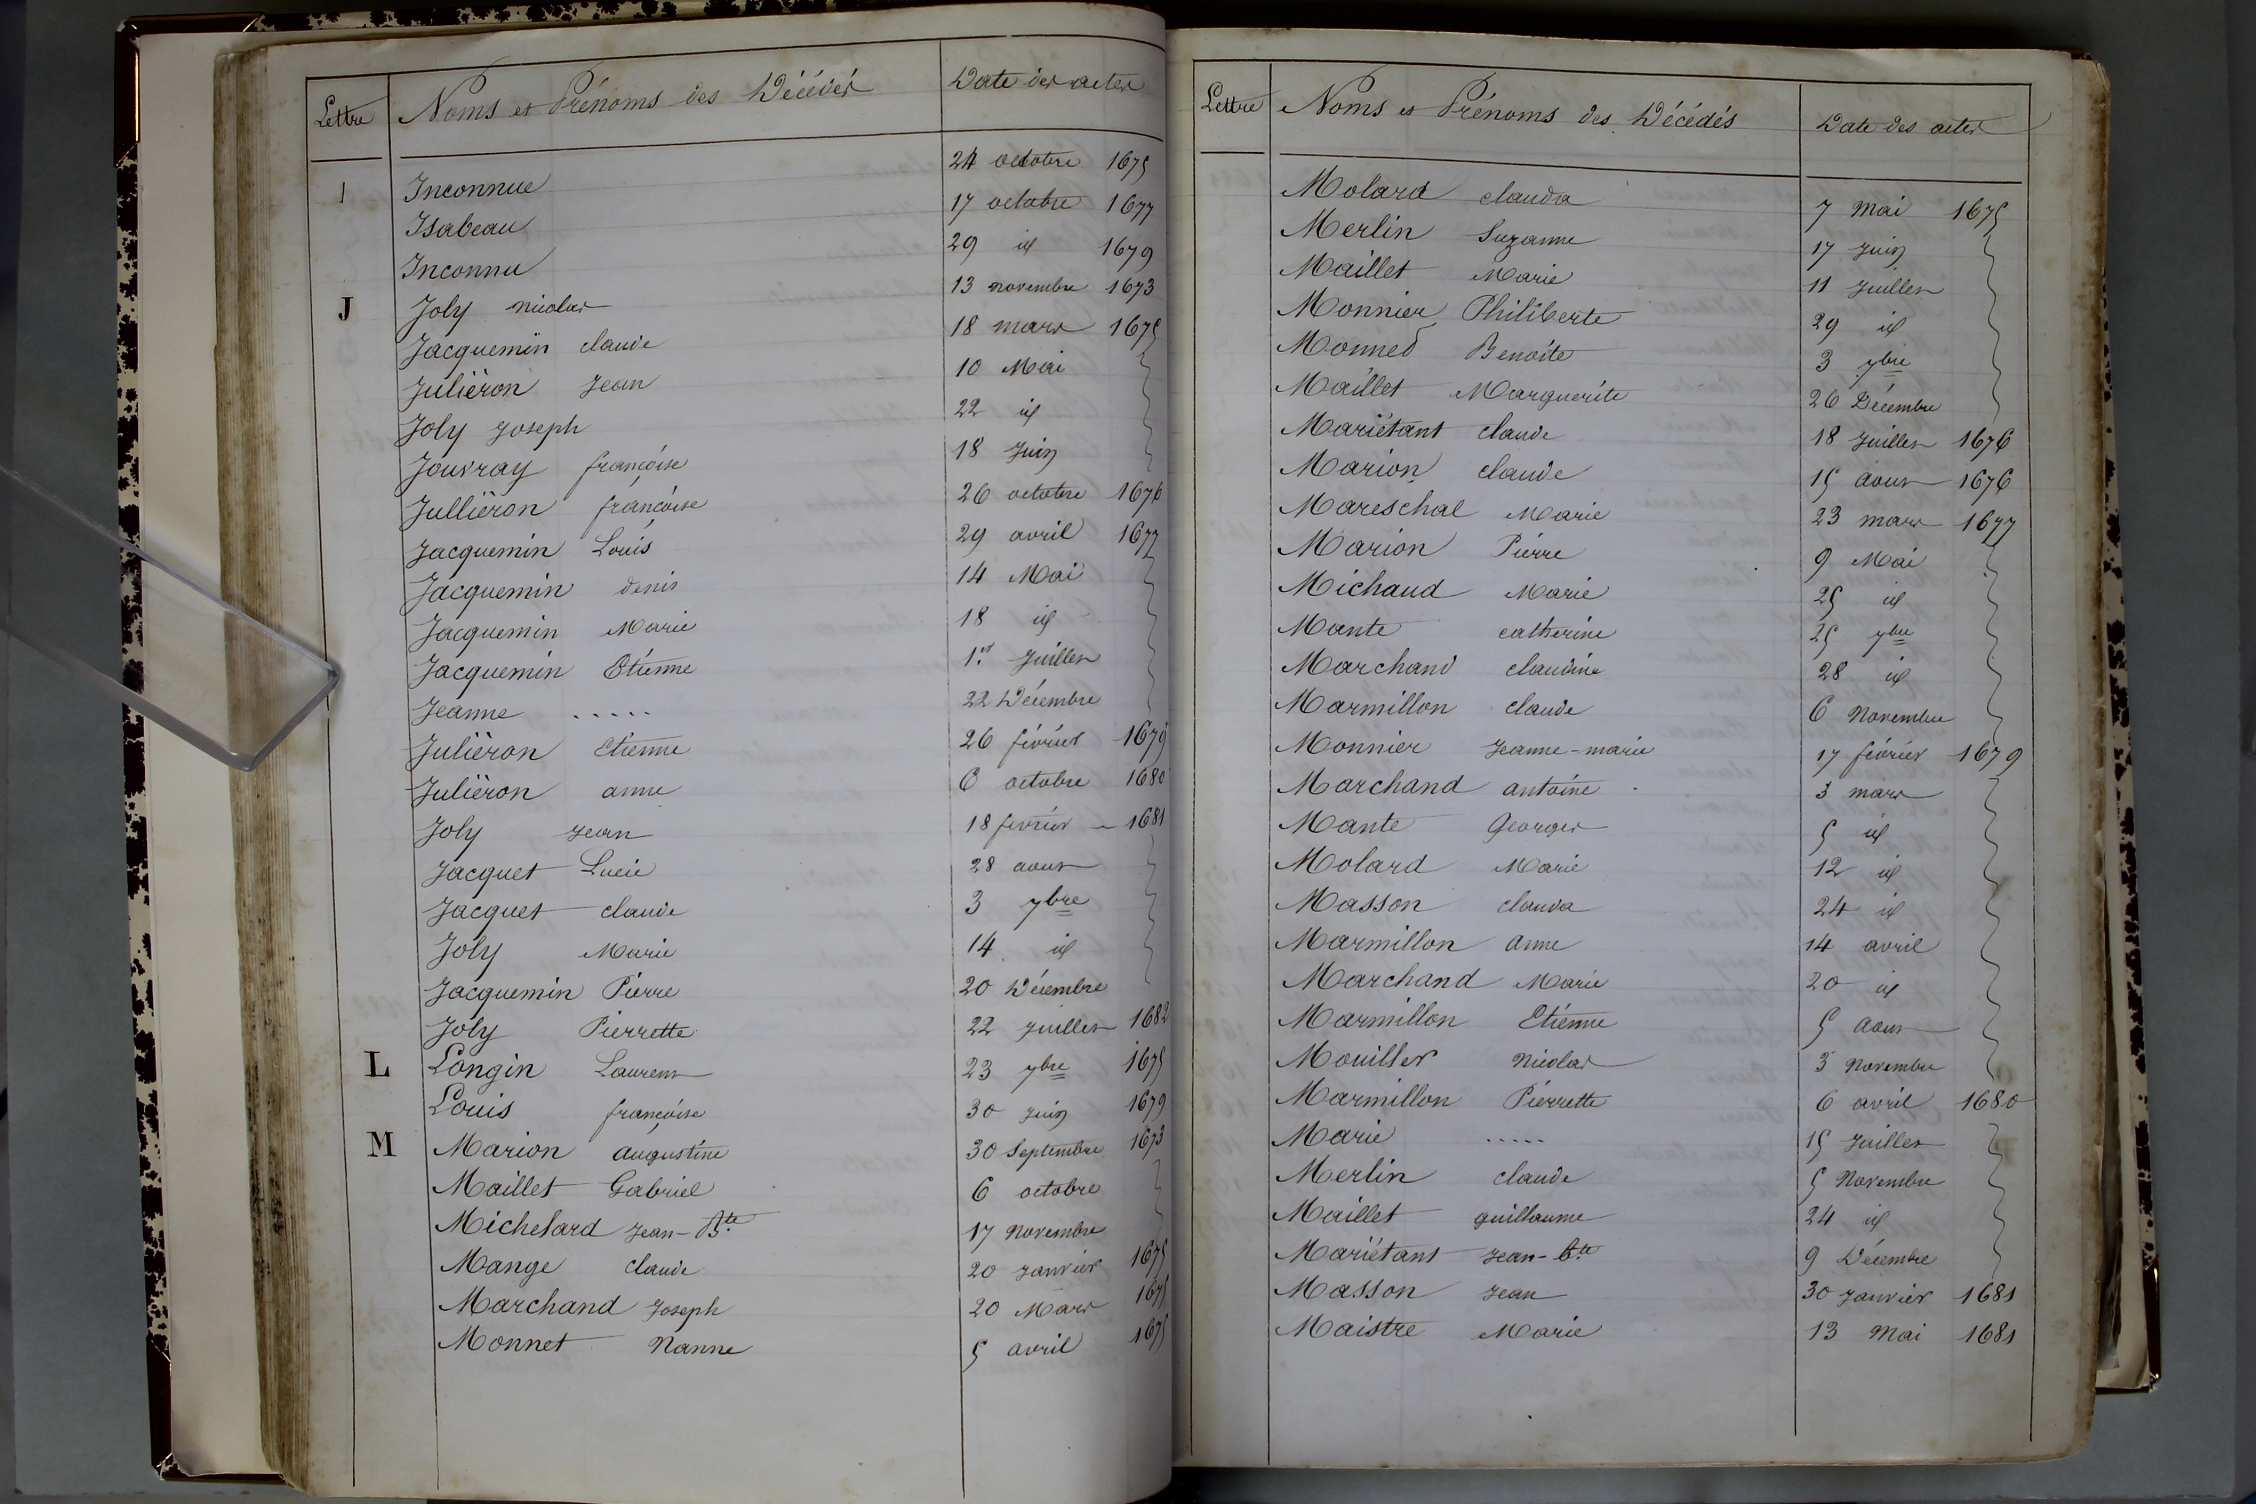 Lettre Noms et Prénoms des Décédés Date des actes
I Inconnue 24 octobre 1675
Isabeau 17 octobre 1677
Inconnu 29 id 1679
J Joly nicolas 13 novembre 1673
Jacquemin claude 18 mars 1675
Juliéron Jean 10 Mai
Joly Joseph 22 id
Jouvray françoise 18 Juin
Julliéron françoise 26 octobre 1676
Jacquemin Louis 29 avril 1677
Jacquemin denis 14 Mai
Jacquemin Marie 18 id
Jacquemin Etienne 1er Juillet
Jeanne ..... 22 Décembre
Juliéron Etienne 26 février 1679
Juliéron anne 6 octobre 1680
Joly Jean 18 février 1681
Jacquet Lucie 28 aout
Jacquet claude 3 7bre
Joly Marie 14 id
Jacquemin Pierre 20 Décembre
Joly Pierrette 22 Juillet 1682
L Longin Laurent 23 7bre 1675
Louis françoise 30 Juin 1679
M Marion augustine 30 Septembre 1673
Maillet Gabriel 6 octobre
Michelard Jean-Bte 17 Novembre
Mange claude 20 Janvier 1675
Marchand Joseph 20 Mars 1675
Monnet Nanne 5 avril 1675
Lettre Noms et Prénoms des Décédés Date des actes
Molard clauda 7 Mai 1675
Merlin Suzanne 17 Juin
Maillet Marie 11 Juillet
Monnier Philiberte 29 id
Monned Benoite 3 7bre
Maillet Marguerite 26 Décembre
Mariétant claude 18 Juillet 1676
Marion claude 15 aout 1676
Mareschal Marie 23 mars 1677
Marion Pierre 9 Mai
Michaud Marie 25 id
Mante catherine 25 7bre
Marchand claudine 28 id
Marmillon claude 6 Novembre
Monnier Jeanne-marie 17 février 1679
Marchand antoine 3 mars
Mante Georges 5 id
Molard Marie 12 id
Masson clauda 24 id
Marmillon anne 14 avril
Marchand Marie 20 id
Marmillon Etienne 5 Aout
Mouiller Nicolas 3 Novembre
Marmillon Pierrette 6 avril 1680
Marie ..... 15 Juillet
Merlin claude 5 Novembre
Maillet guillaume 24 id
Mariétant Jean-Bte 9 Décembre
Masson Jean 30 Janvier 1681
Maistre Marie 13 Mai 1681